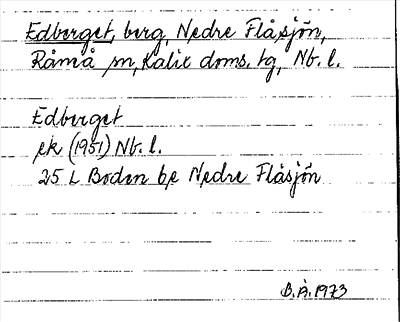 Edberget, berg, Nedre Flåsjön,
Råneå sn, Kalix doms. tg, Nb. l.
Edberget
ek (1951) Nb. l.
25 L Boden be Nedre Flåsjön
B.Å. 1973